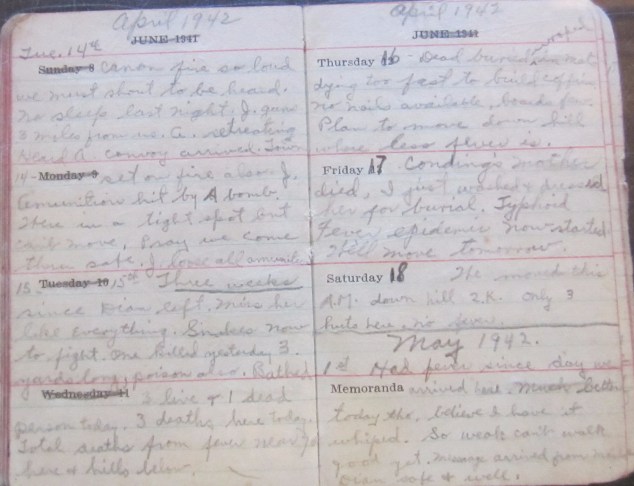 April 1942
JUNE 1941
Tue. 14th
Sunday 8 Canon fire so loud
we must shout to be heard.
No sleep last night. J. guns
3 miles from us. A. retreating
Heard A convoy arrived. Town
14 - Monday 9 set on fire also J.
Amunition hit by A bomb.
Were in a tight spot but
can't move, Pray we come
thru safe. J. loose all amunition
15 Tuesday 10 15th Three weeks
since Dian left. Miss her
like everything. Snakes now
to fight. One killed yesterday 3
yards long, poison also. Bathed
Wednesday 11 2 live & 1 dead
person today. 3 deaths here today.
Total deaths from fever near 70
here & hills below.
April 1942
JUNE 1941
wraped
Thursday 16 - Dead buried in mat
dying too fast to build coffin
no nails available, boards few.
Plan to move down hill
where less fever is.
Friday 17 Conding's mother
died, I just washed & dressed
her for burial. Typhoid
fever epidemic now started.
Will move tomorrow.
Saturday 18 We moved this
A.M. down hill 2 K. Only 3
huts here, no fever
May 1942.
1st Had fever since day we
Memoranda arrived here. Much better
today tho, believe I have it
whiped. So weak can't walk
good yet. Message arrived from
Dian safe & well.